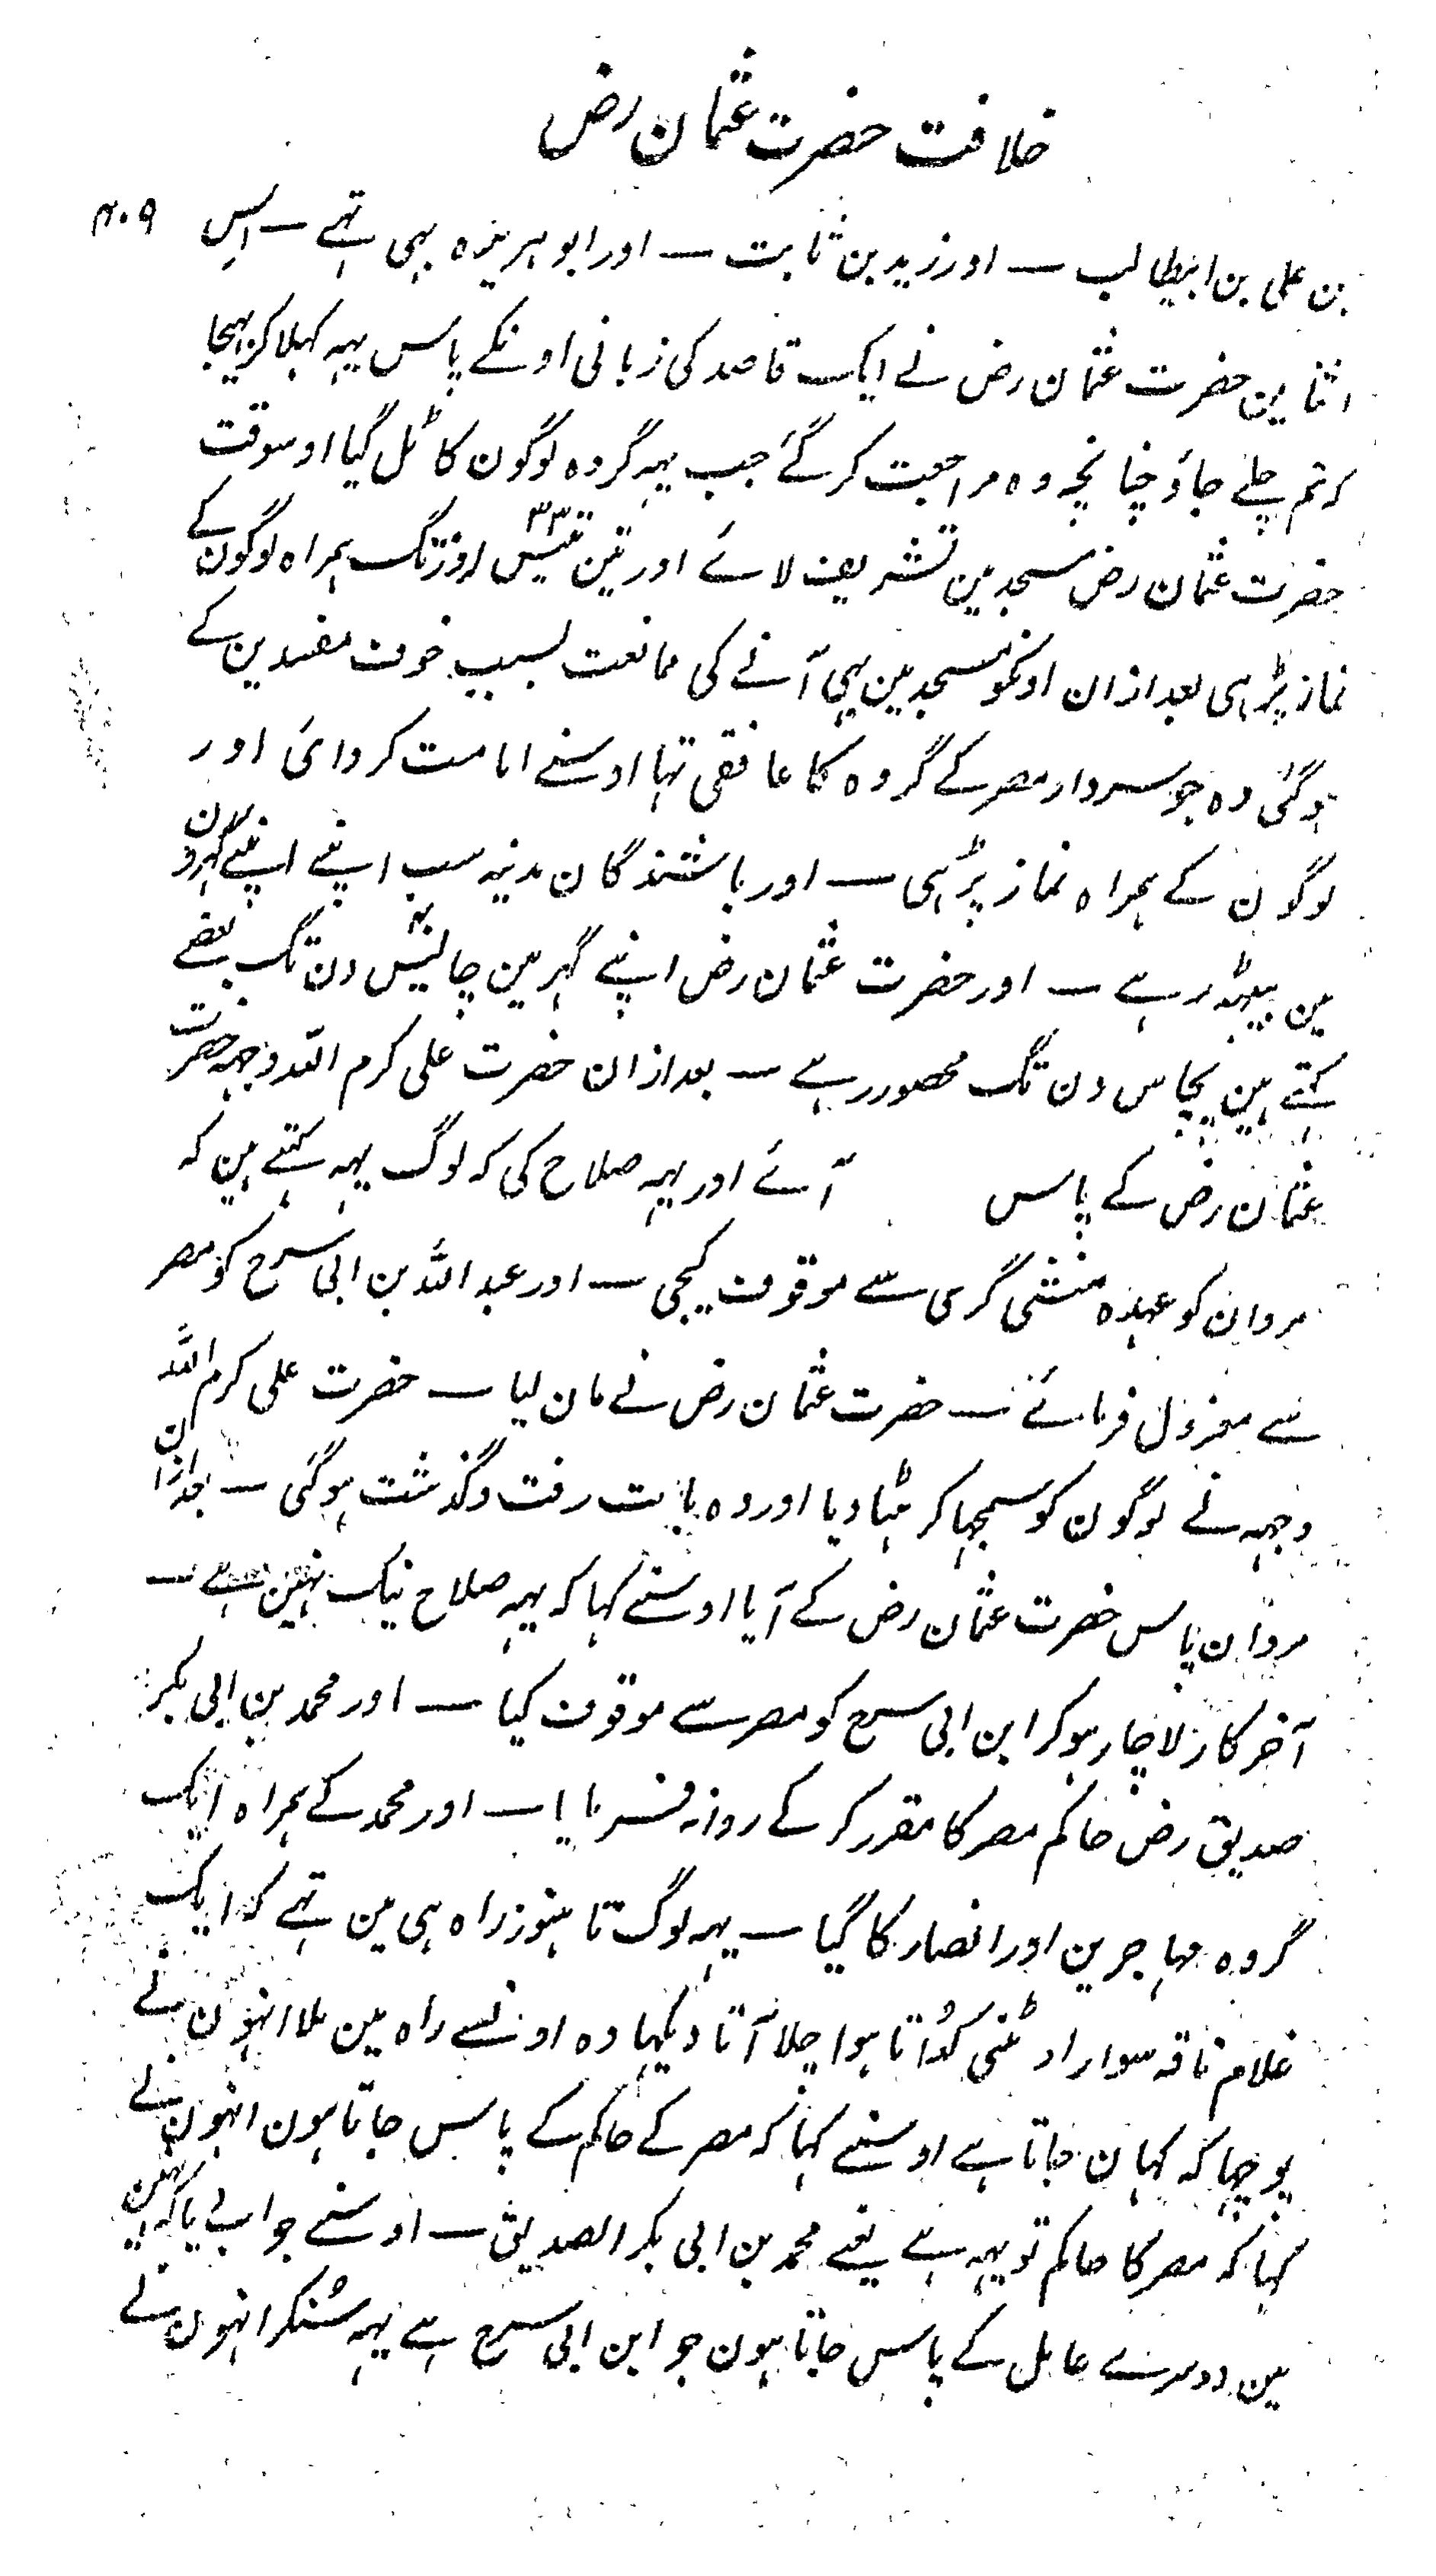 خلافت حضرت عثمان رض
۴۰۹
بن علی بن ابیطالب — اور زید بن ثابت — اور ابو ہریرہ بہی تہے — اس
اثنا مین حضرت عثمان رض نے ایک قاصد کی زبانی اونکے پاس یہہ کہلا کر بہیجا
کہ تم چلے جاؤ چنانچہ وہ مراجعت کر گئے جب یہہ گروہ لوگون کا ٹل گیا اوسوقت
حضرت عثمان رض مسجد مین تشریف لائے اور تین تیس ۳۳ روز تک ہمراہ لوگون کے
نماز پڑہی بعد ازان اونکو مسجد مین بہی آنے کی ممانعت بسبب خوف مفسدین کے
ہو گئی وہ جو سردار مصر کے گروہ کا عافقی تہا اوسنے امامت کروائی اور
لوگون کے ہمراہ نماز پڑہی — اور باشندگان مدینہ سب اپنے اپنے گہرون
مین بیٹہہ رہے — اور حضرت عثمان رض اپنے گہر مین چالیس ۴۰ دن تک بعضے
کہتے ہین پچاس دن تک محصور رہے — بعد ازان حضرت علی کرم اللہ وجہہ حضرت
عثمان رض کے پاس آئے اور یہہ صلاح کی کہ لوگ یہہ کہتے ہین کہ
مروان کو عہدہ منشی گری سے موقوف کیجی — اور عبد اللہ بن ابی سرح کو مصر
سے معزول فرمائے — حضرت عثمان رض نے مان لیا — حضرت علی کرم اللہ
وجہہ نے لوگون کو سمجہا کر ہٹا دیا اور وہ بات رفت و گذشت ہو گئی — بعد ازان
مروان پاس حضرت عثمان رض کے آیا اوسنے کہا کہ یہہ صلاح نیک نہین ہے —
آخر کار لاچار ہو کر ابن ابی سرح کو مصر سے موقوف کیا — اور محمد بن ابی بکر
صدیق رض حاکم مصر کا مقرر کر کے روانہ فرمایا — اور محمد کے ہمراہ ایک
گروہ مہاجرین اور انصار کا گیا — یہہ لوگ تا ہنوز راہ ہی مین تہے کہ ایک
غلام ناقہ سوار اونٹنی کداتا ہوا چلا آتا دیکہا وہ اونسے راہ مین ملا انہون نے
پوچہا کہ کہان جاتا ہے اوسنے کہا کہ مصر کے حاکم کے پاس جاتا ہون انہون نے
کہا کہ مصر کا حاکم تو یہہ ہے یعنے محمد بن ابی بکر الصدیق — اوسنے جواب دیا کہ نہین
مین دوسرے عامل کے پاس جاتا ہون جو ابن ابی سرح ہے یہہ سُنکر انہون نے